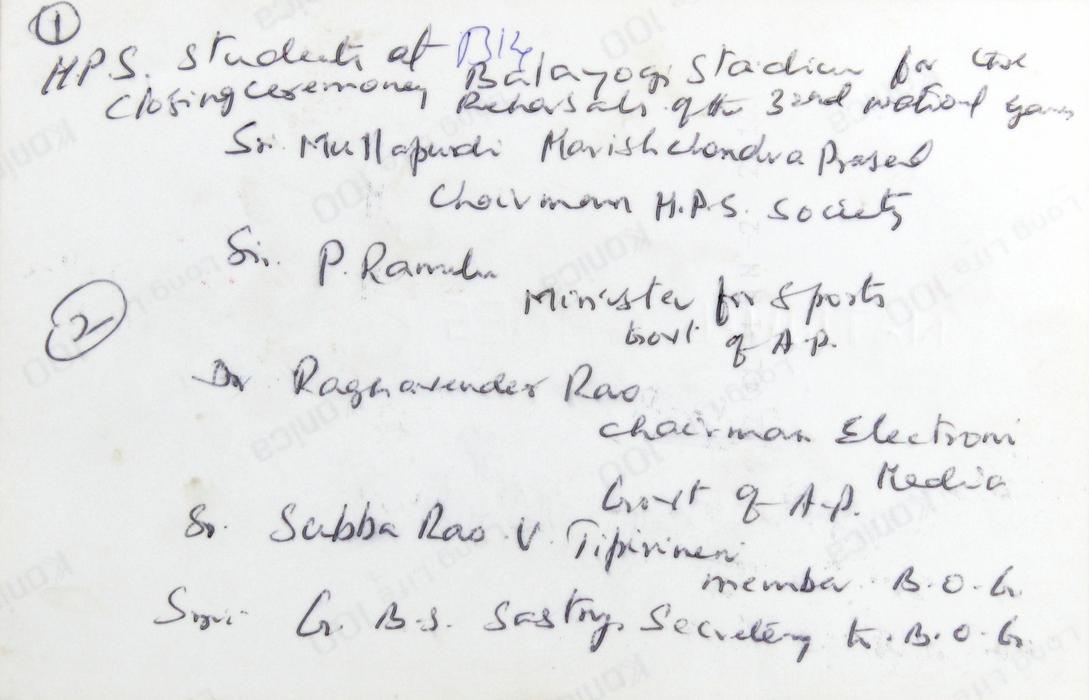 ①
H.P.S. students at Balayogi Stadium for the
closing ceremoney Rehersals of the 32nd national games
Sri Mullapudi Harishchandra Prasad
Chairman H.P.S. Society
Sri. P. Ramulu
②
Minister for Sports
Govt of A.P.
Dr Raghavender Rao
chairman Electroni
Media
Govt of A.P.
Sri. Subba Rao. V. Tipirineni
member B.O.G.
Sri G. B.S. Sastry, Secretary to B.O.G.
Konica
LONG LIFE 100